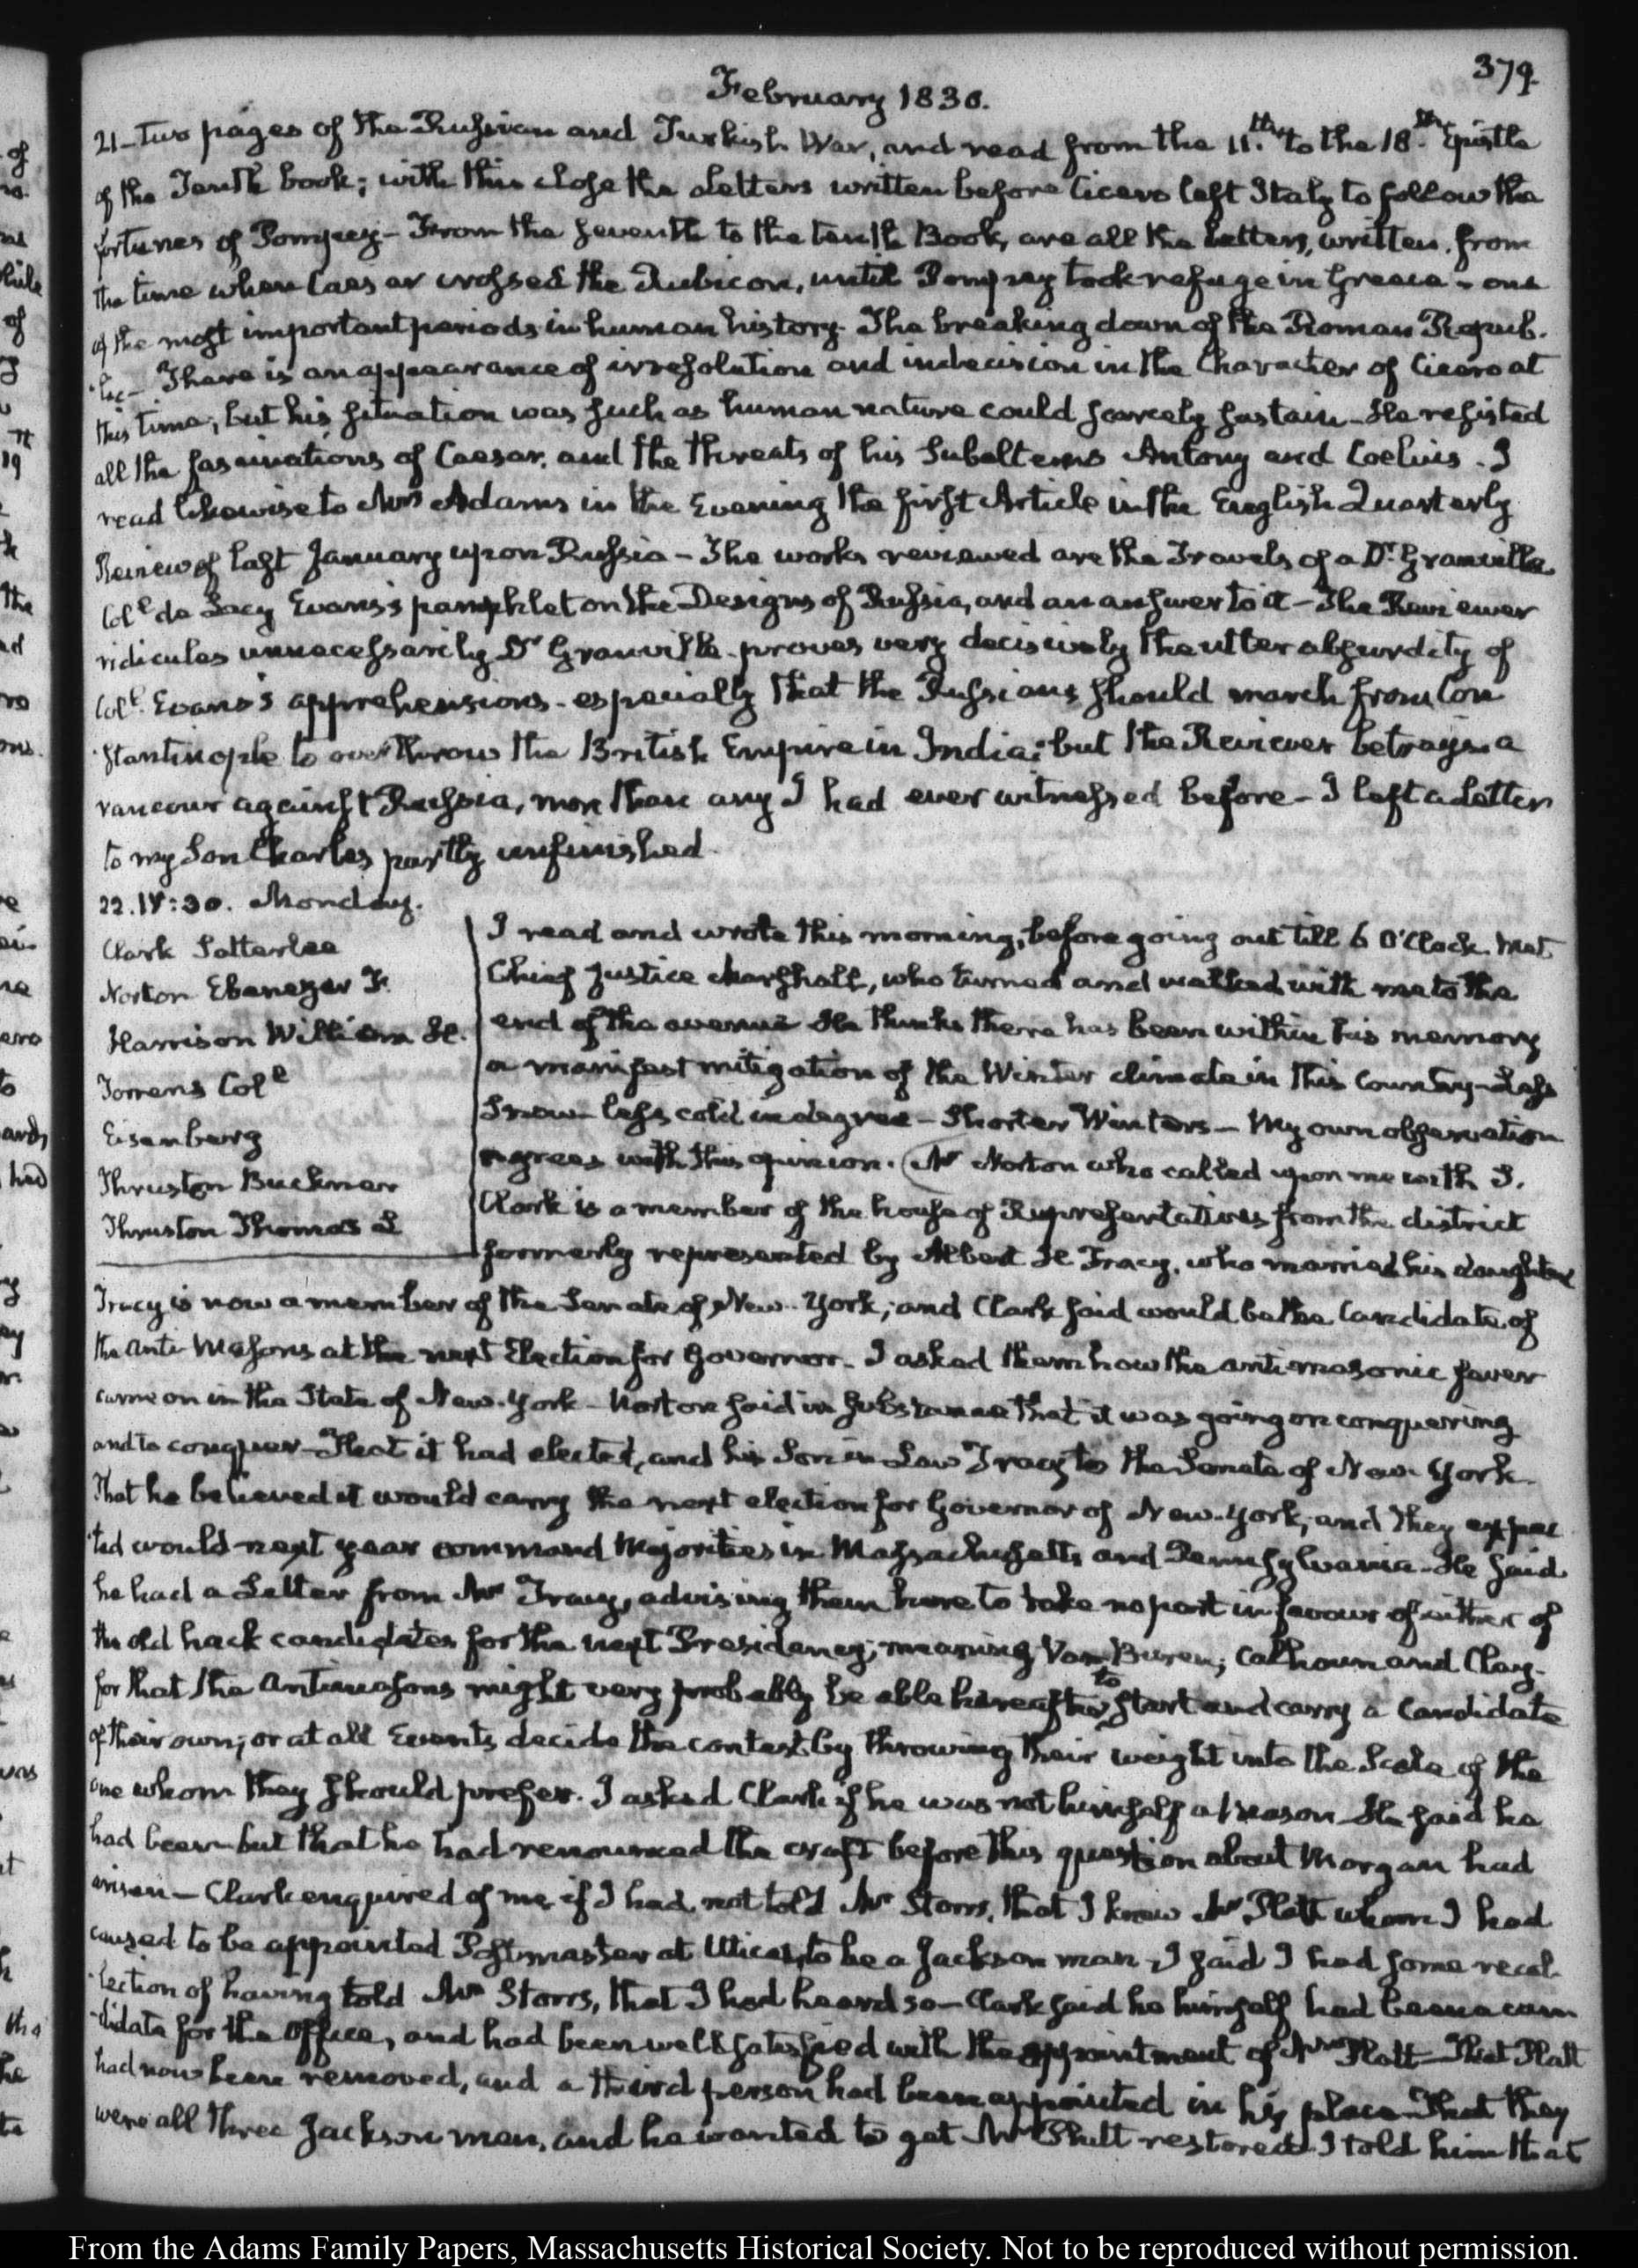 379.
February 1830.
21 – two pages of the Russian and Turkish War, and read from the 11.th to the 18.th Epistle
of the Tenth book; with this close the Letters written before Cicero left Italy to follow the
fortunes of Pompey – From the seventh to the tenth Book, are all the Letters, written, from
the time when Caesar crossed the Rubicon, until Pompey took refuge in Greece – one
of the most important periods in human history. The breaking down of the Roman Repub-
-lic – There is an appearance of irresolution and indecision in the Character of Cicero at
this time; but his situation was such as human nature could scarcely sustain – He resisted
all the fascinations of Caesar, and the threats of his Subalterns Antony and Coelius. I
read likewise to Mrs Adams in the Evening the first Article in the English Quarterly
Review of last January upon Russia – The works reviewed are the Travels of a Dr. Granville
Col.l de Lacy Evans's pamphlet on the Designs of Russia, and an answer to it – The Reviewer
ridicules unnecessarily Dr Granville – proves very decisively the utter absurdity of
Col.l Evans's apprehensions – especially that the Russians should march from Con
-stantinople to overthrow the British Empire in India; but the Reviewer betrays a
rancour against Russia, more than any I had ever witnessed before – I left a Letter
to my Son Charles partly unfinished.
22. IV:30. Monday.
Clark Satterlee
Norton Ebenezer F.
Harrison William H.
Torrens Col.l
Eisenberg
Thruston Buckner
Thruston Thomas L
I read and wrote this morning, before going out till 6 O'Clock. Met
Chief Justice Marshall, who turned and walked with me to the
end of the avenue He thinks there has been within his memory
a manifest mitigation of the Winter climate in this Country – Less
Snow – less cold in degree – Shorter Winters – My own observation
agrees with this opinion. (Mr Norton who called upon me with S.
Clark is a member of the house of Representatives from the district
formerly represented by Albert H Tracy, who married his daughter
Tracy is now a member of the Senate of New-York; and Clark said would be the Candidate of
the Anti Masons at the next Election for Governor. I asked them how the antimasonic fever
came on in the State of New-York – Norton said in substance that it was going on conquering
and to conquer – That it had elected, and his Son in Law Tracy to the Senate of New York –
That he believed it would carry the next election for Governor of New-York; and they expec
-ted would next year command Majorities in Massachusetts and Pennsylvania – He said
he had a Letter from Mr Tracy, advising them here to take no part in favour of either of
the old hack candidates for the next Presidency; meaning Van Buren, Calhoun and Clay –
for that the Antimasons might very probably be able hereafter to start and carry a Candidate
of their own; or at all Events decide the contest by throwing their weight into the Scale of the
one whom they should prefer. I asked Clark if he was not himself a Mason – He said he
had been – but that he had renounced the craft before this question about Morgan had
arisen – Clark enquired of me if I had not told Mr Storrs, that I knew Mr Platt whom I had
caused to be appointed Postmaster at Utica, to be a Jackson man – I said I had some recol-
-lection of having told Mr Storrs, that I had heard so – Clark said he himself had been a can
-didate for the Office, and had been well satisfied with the appointment of Mr Platt – That Platt
had now been removed, and a third person had been appointed in his place – That they
were all three Jackson men, and he wanted to get Mr Platt restored – I told him that
From the Adams Family Papers, Massachusetts Historical Society. Not to be reproduced without permission.